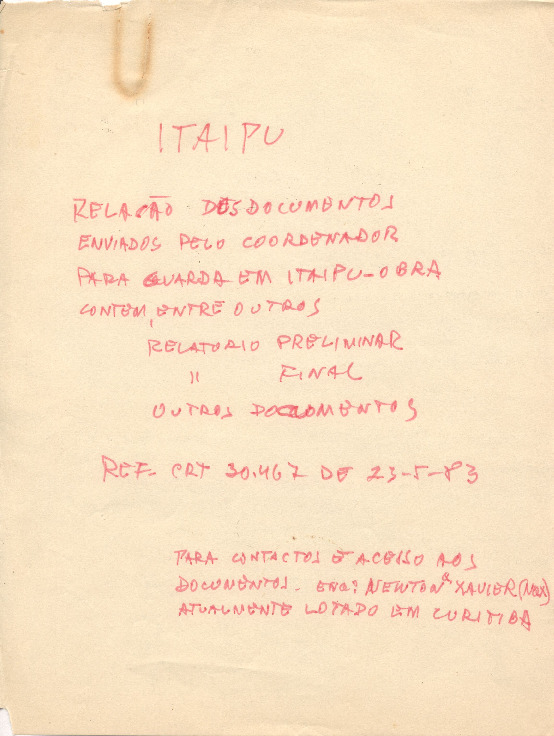 ITAIPU
RELAÇÃO DOS DOCUMENTOS
ENVIADOS PELO COORDENADOR
PARA GUARDA EM ITAIPU-OBRA
CONTEM, ENTRE OUTROS
RELATORIO PRELIMINAR
" FINAL
OUTROS DOCUMENTOS
REF- CRT 30.467 DE 23-5-83
PARA CONTACTOS E ACESSO AOS
DOCUMENTOS - ENGº NEWTON XAVIER
ATUALMENTE LOTADO EM CURITIBA